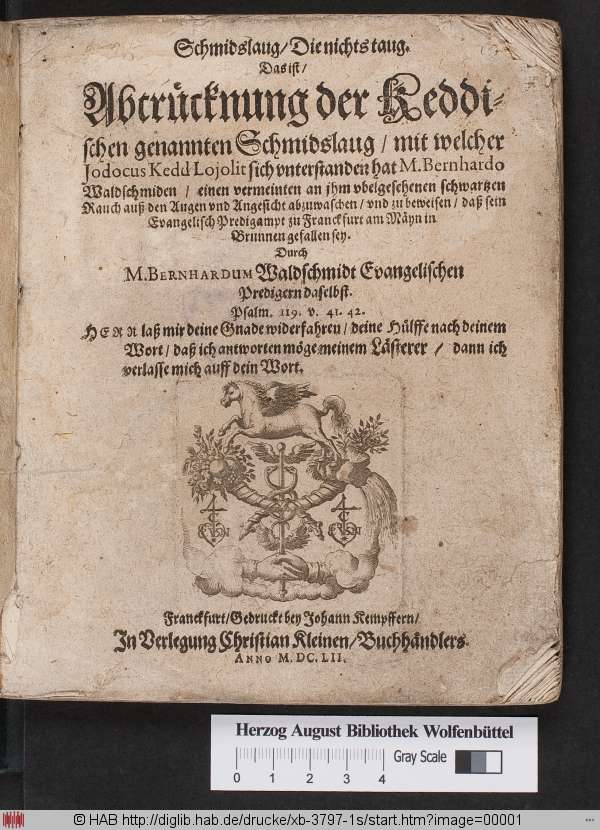 Schmidslaug/ Die nichts taug.
Das ist/
Abtrücknung der Keddi-
schen genannten Schmidslaug / mit welcher
Jodocus Kedd Lojolit sich vnterstanden hat M. Bernhardo
Waldschmiden / einen vermeinten an jhm vbelgesehenen schwartzen
Rauch auß den Augen vnd Angesicht abzuwaschen / vnd zu beweisen / daß sein
Evangelisch Predigampt zu Franckfurt am Mäyn in
Brunnen gefallen sey.
Durch
M. BERNHARDUM Waldschmidt Evangelischen
Predigern daselbst.
Psalm. 119. v. 41. 42.
HERR laß mir deine Gnade widerfahren / deine Hülffe nach deinem
Wort / daß ich antworten möge meinem Lästerer / dann ich
verlasse mich auff dein Wort.
Franckfurt/ Gedruckt bey Johann Kempffern/
In Verlegung Christian Kleinen/ Buchhändlers.
ANNO M. DC. LII.
Herzog August Bibliothek Wolfenbüttel
Gray Scale
0 1 2 3 4
© HAB http://diglib.hab.de/drucke/xb-3797-1s/start.htm?image=00001